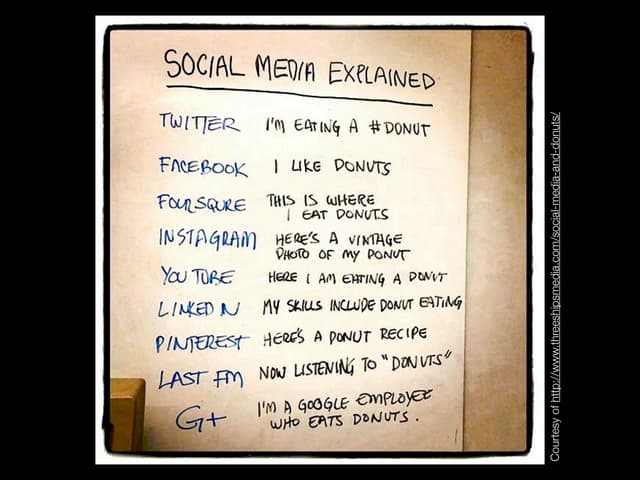 SOCIAL MEDIA EXPLAINED
TWITTER I'M EATING A #DONUT
FACEBOOK I LIKE DONUTS
FOURSQURE THIS IS WHERE
I EAT DONUTS
INSTAGRAM HERE'S A VINTAGE
PHOTO OF MY DONUT
YOU TUBE HERE I AM EATING A DONUT
LINKED IN MY SKILLS INCLUDE DONUT EATING
PINTEREST HERE'S A DONUT RECIPE
LAST FM NOW LISTENING TO "DONUTS"
G+ I'M A GOOGLE EMPLOYEE
WHO EATS DONUTS.
Courtesy of http://www.threeshipsmedia.com/social-media-and-donuts/